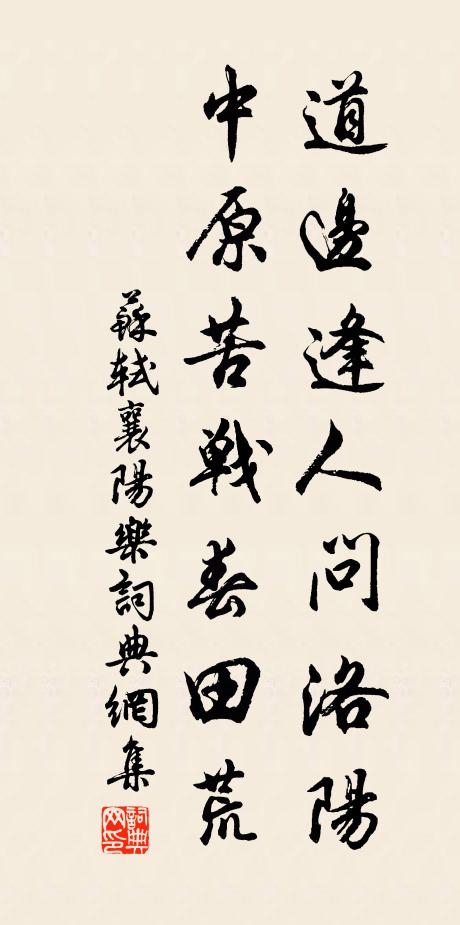 道邊逢人問洛陽
中原苦戰春田荒
蘇軾襄陽樂詞典網集
詞典網印